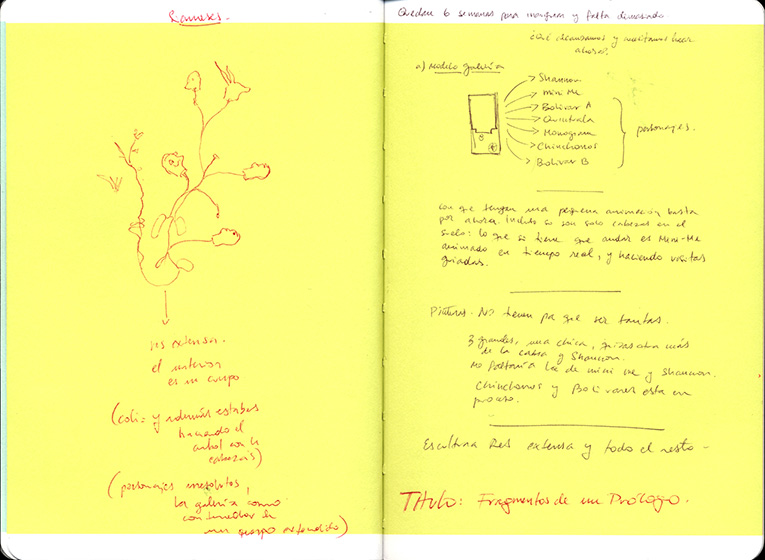 Siameses.
res extensa.
el interior
es un cuerpo
(cali- y además estabas
haciendo el
arbol con la
cabezas)
(personajes
La galería como
contenedor de
un cuerpo extendido)
Quedan 6 semanas para inaugurar y falta demasiado.
¿Qué alcanzamos y necesitamos hacer
ahora?
a) Modelo galería
Shannon
mini Me
Bolivar A
Quintrala
Monograma
Chinchonos
Bolivar B
personajes.
con que tengan una pequeña animación basta
por ahora. Incluso si son solo cabezas en el
suelo: lo que si tiene que andar es Mini-Me
animado en tiempo real, y haciendo visitas
guiadas.
Pinturas. No tienen pq que ser tantas.
3 grandes, una chica, quizas otra más
de la cabra y Shannon.
no faltaría la de mini Me y Shannon.
Chinchonos y Bolivares esta en
proceso.
Escultura Res extensa y todo el resto -
Título: Fragmentos de un Prólogo.